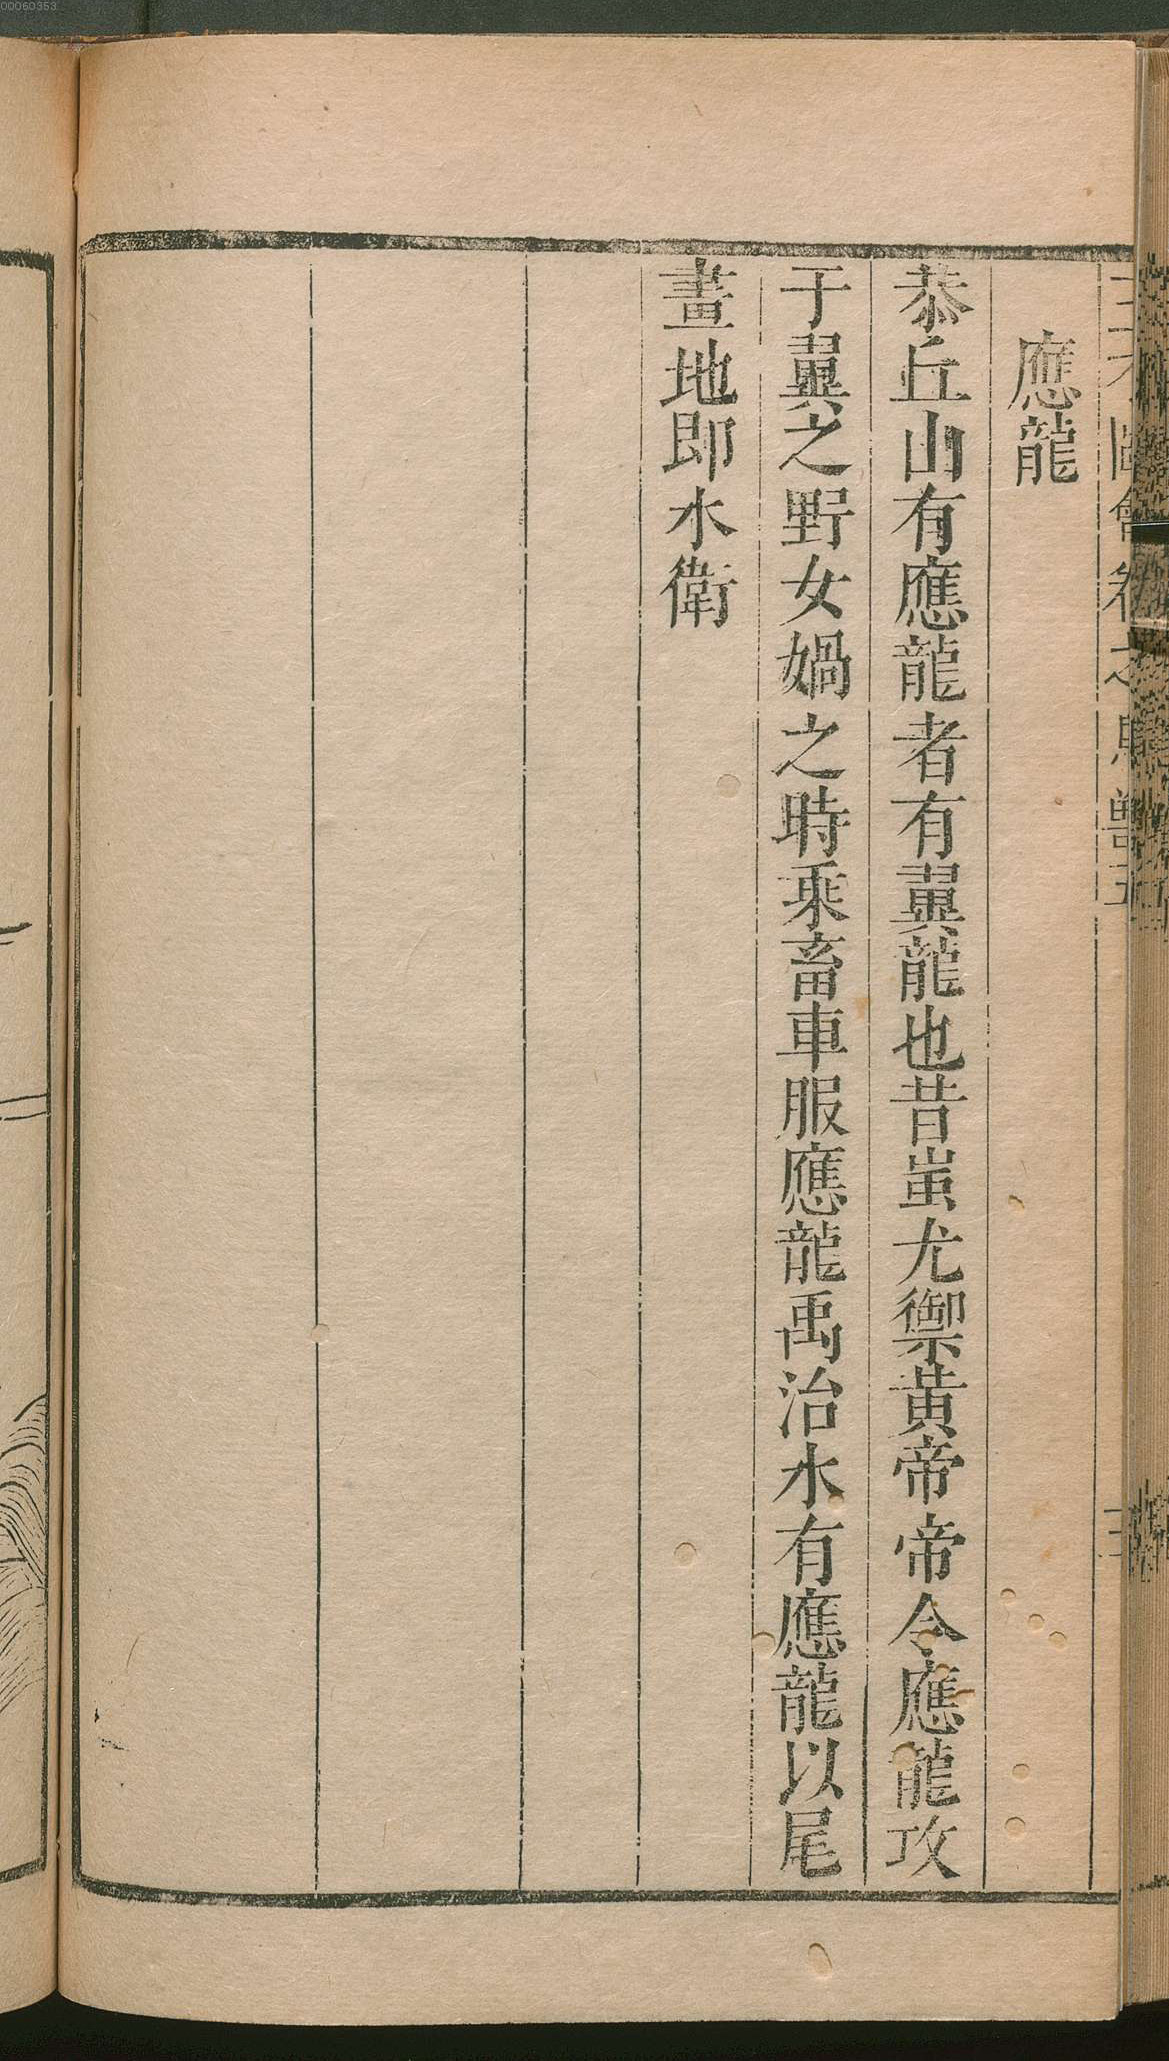 00060353
應龍
恭丘山有應龍者有翼龍也昔蚩尤禦黃帝帝令應龍攻
于翼之野女媧之時乘畜車服應龍禹治水有應龍以尾
畫地即水衛